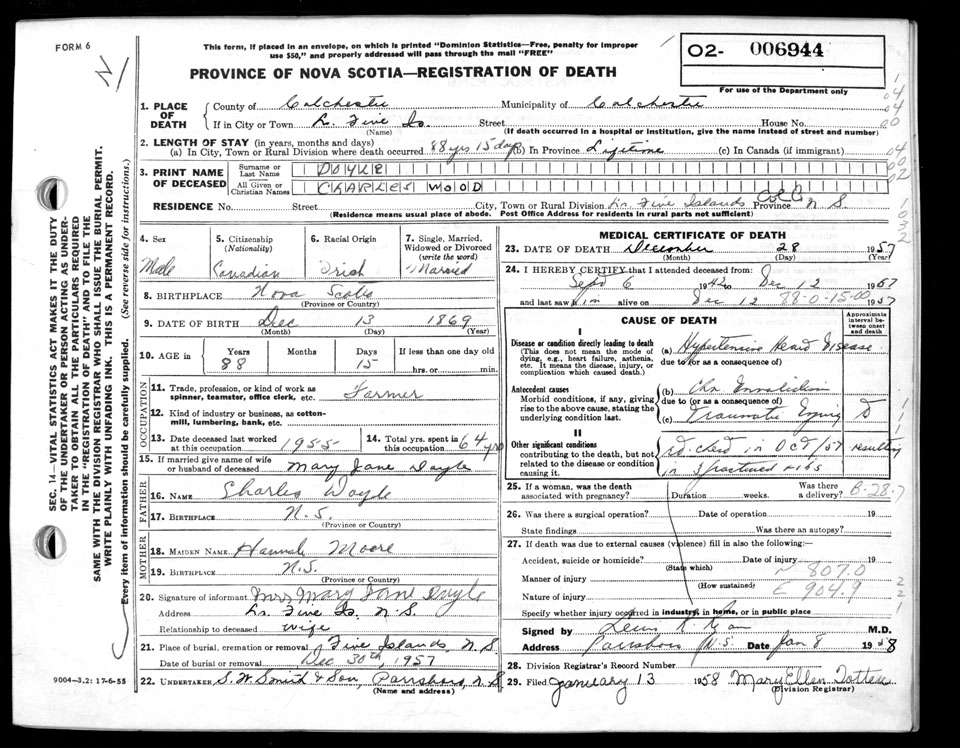 FORM 6
This form, if placed in an envelope, on which is printed "Dominion Statistics—Free, penalty for improper
use $50," and properly addressed will pass through the mail "FREE"
02- 006944
For use of the Department only
PROVINCE OF NOVA SCOTIA—REGISTRATION OF DEATH
SEC. 14—VITAL STATISTICS ACT MAKES IT THE DUTY
OF THE UNDERTAKER OR PERSON ACTING AS UNDER-
TAKER TO OBTAIN ALL THE PARTICULARS REQUIRED
IN THE "REGISTRATION OF DEATH" AND TO FILE THE
SAME WITH THE DIVISION REGISTRAR WHO SHALL ISSUE THE BURIAL PERMIT.
WRITE PLAINLY WITH UNFADING INK. THIS IS A PERMANENT RECORD.
Every item of information should be carefully supplied. (See reverse side for instructions.)
1. PLACE OF DEATH County of Colchester Municipality of Colchester
If in City or Town L. Five Is. Street House No.
(Name) (If death occurred in a hospital or institution, give the name instead of street and number)
2. LENGTH OF STAY (in years, months and days)
(a) In City, Town or Rural Division where death occurred 88 yrs 15 days (b) In Province Lifetime (c) In Canada (if immigrant)
3. PRINT NAME OF DECEASED Surname or Last Name DOYLE
All Given or Christian Names CHARLES WOOD
RESIDENCE No. Street City, Town or Rural Division Lr. Five Islands Col. Co. Province N S
(Residence means usual place of abode. Post Office Address for residents in rural parts not sufficient)
4. Sex Male
5. Citizenship (Nationality) Canadian
6. Racial Origin Irish
7. Single, Married, Widowed or Divorced (write the word) Married
8. BIRTHPLACE Nova Scotia
(Province or Country)
9. DATE OF BIRTH Dec 13 1869
(Month) (Day) (Year)
10. AGE in Years 88 Months Days 15 If less than one day old hrs. or min.
OCCUPATION
11. Trade, profession, or kind of work as spinner, teamster, office clerk, etc. Farmer
12. Kind of industry or business, as cotton-mill, lumbering, bank, etc.
13. Date deceased last worked at this occupation 1955
14. Total yrs. spent in this occupation 64 yrs
15. If married give name of wife or husband of deceased Mary Jane Doyle
FATHER
16. NAME Charles Doyle
17. BIRTHPLACE N.S.
(Province or Country)
MOTHER
18. MAIDEN NAME Hannah Moore
19. BIRTHPLACE N.S.
(Province or Country)
20. Signature of informant Mrs Mary Jane Doyle
Address Lr. Five Is. N.S.
Relationship to deceased wife
21. Place of burial, cremation or removal Five Islands, N.S.
Date of burial or removal Dec 30th, 1957
22. UNDERTAKER S.W. Smith & Son, Parrsboro, N.S
(Name and address)
9004—3.2: 17-6-55
MEDICAL CERTIFICATE OF DEATH
23. DATE OF DEATH December 28 1957
(Month) (Day) (Year)
24. I HEREBY CERTIFY that I attended deceased from:
Sept 6 1942 to Dec 12 1957
and last saw him alive on Dec 12 88-0-15-00 1957
CAUSE OF DEATH
Approximate interval between onset and death
I
Disease or condition directly leading to death
(This does not mean the mode of dying, e.g., heart failure, asthenia, etc. It means the disease, injury, or complication which caused death.)
(a) Hypertensive Heart Disease
due to (or as a consequence of)
Antecedent causes
Morbid conditions, if any, giving rise to the above cause, stating the underlying condition last.
(b) Chr
due to (or as a consequence of)
(c) Traumatic
II
Other significant conditions
contributing to the death, but not related to the disease or condition causing it.
in Oct/57 resulting
in 3 fractured ribs
25. If a woman, was the death associated with pregnancy? Duration weeks. Was there a delivery? B-28-7
26. Was there a surgical operation? Date of operation 19
State findings Was there an autopsy?
27. If death was due to external causes (violence) fill in also the following:
Accident, suicide or homicide? Date of injury 19
(State which)
Manner of injury N 807.0
(How sustained)
Nature of injury E 904.9
Specify whether injury occurred in industry, in home, or in public place
Signed by M.D.
Address Parrsboro N.S. Date Jan 8 1958
28. Division Registrar's Record Number
29. Filed January 13 1958 Mary Ellen Totten
(Division Registrar)